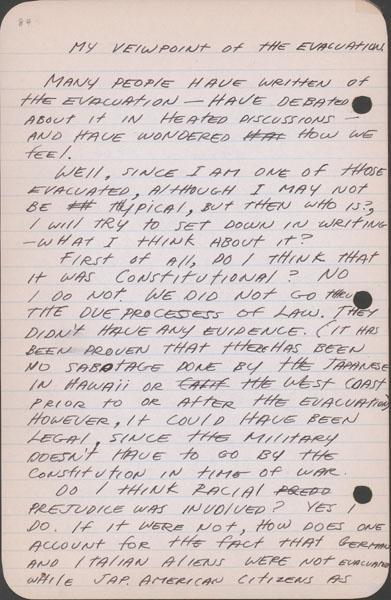 84
MY VEIWPOINT OF THE EVACUATION
MANY PEOPLE HAVE WRITTEN OF
THE EVACUATION — HAVE DEBATED
ABOUT IT IN HEATED DISCUSSIONS —
AND HAVE WONDERED HOW WE
FEEL.
WELL, SINCE I AM ONE OF THOSE
EVACUATED, ALTHOUGH I MAY NOT
BE TYPICAL, BUT THEN WHO IS?,
I WILL TRY TO SET DOWN IN WRITING
—WHAT I THINK ABOUT IT?
FIRST OF ALL, DO I THINK THAT
IT WAS CONSTITUTIONAL? NO
I DO NOT. WE DID NOT GO THRU
THE DUE PROCESSESS OF LAW. THEY
DIDN'T HAVE ANY EVIDENCE. (IT HAS
BEEN PROVEN THAT THERE HAS BEEN
NO SABOTAGE DONE BY THE JAPANESE
IN HAWAII OR CALIF THE WEST COAST
PRIOR TO OR AFTER THE EVACUATION)
HOWEVER, IT COULD HAVE BEEN
LEGAL, SINCE THE MILITARY
DOESN'T HAVE TO GO BY THE
CONSTITUTION IN TIME OF WAR.
DO I THINK RACIAL PREDD
PREJUDICE WAS INVOLVED? YES I
DO. IF IT WERE NOT, HOW DOES ONE
ACCOUNT FOR THE FACT THAT GERMAN
AND ITALIAN ALIENS WERE NOT EVACUATED
WHILE JAP. AMERICAN CITIZENS AS